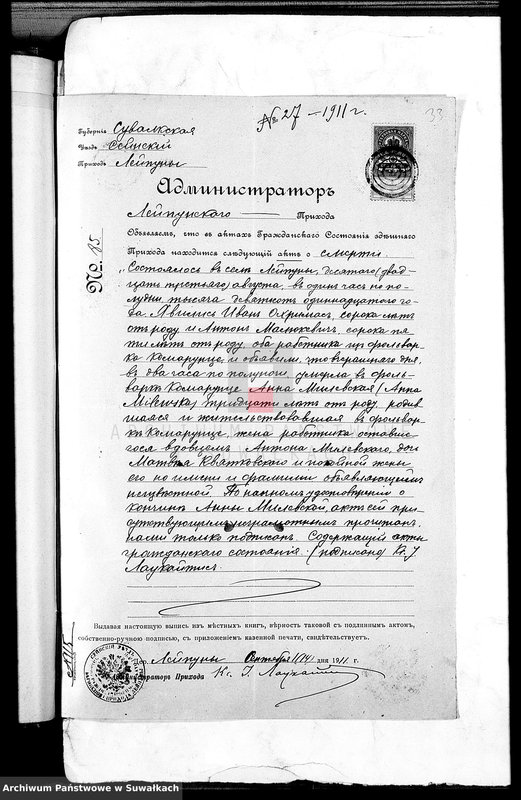 № 27 – 1911 г.
33
Губернія Сувалкская
Уѣздъ Сейнскій
Приходъ Лейпуны
Администраторъ
Лейпунского Прихода
Объявляемъ, что въ актахъ Гражданскаго Состоянія здѣшняго
Прихода находится слѣдующій актъ о смерти
No. 85
„Состоялось въ селѣ Лейпуны, десятаго (двад-
цать третьяго) августа, въ одинъ часъ по по-
лудни тысяча девятьсотъ одиннадцатаго го-
да. Явились Иванъ Охримасъ, сорока лѣтъ
отъ роду и Антонъ Малюкевичъ, сорока пя-
ти лѣтъ отъ роду, оба работники изъ фольвар-
ка Комарунце, и объявили, что вчерашняго дня,
въ два часа по полуночи, умерла въ фоль-
варкѣ Комарунце Анна Милевская (Anna
Milewska) тридцати лѣтъ отъ роду, родив-
шаяся и жительствовавшая въ фольвар-
кѣ Комарунце, жена работника оставше-
гося вдовцемъ Антона Милевскаго, дочь
Матвѣя Квятковскаго и покойной жены
его по имени и фамиліи объявляющимъ
неизвѣстной. По наочномъ удостовѣреніи о
кончинѣ Анны Милевской, актъ сей при-
сутствующимъ неграмотнымъ прочитанъ,
нами только подписанъ. Содержащій акты
гражданскаго состоянія (подписано) Кс. І
Лаукайтисъ.
Выдавая настоящую выпись изъ мѣстныхъ книгъ, вѣрность таковой съ подлиннымъ актомъ,
собственно-ручною подписью, съ приложеніемъ казенной печати, свидѣтельствуетъ.
Лейпуны Сентября 1/14 дня 1911 г.
Администраторъ Прихода Кс. І. Лаукайтисъ
Archiwum Państwowe w Suwałkach